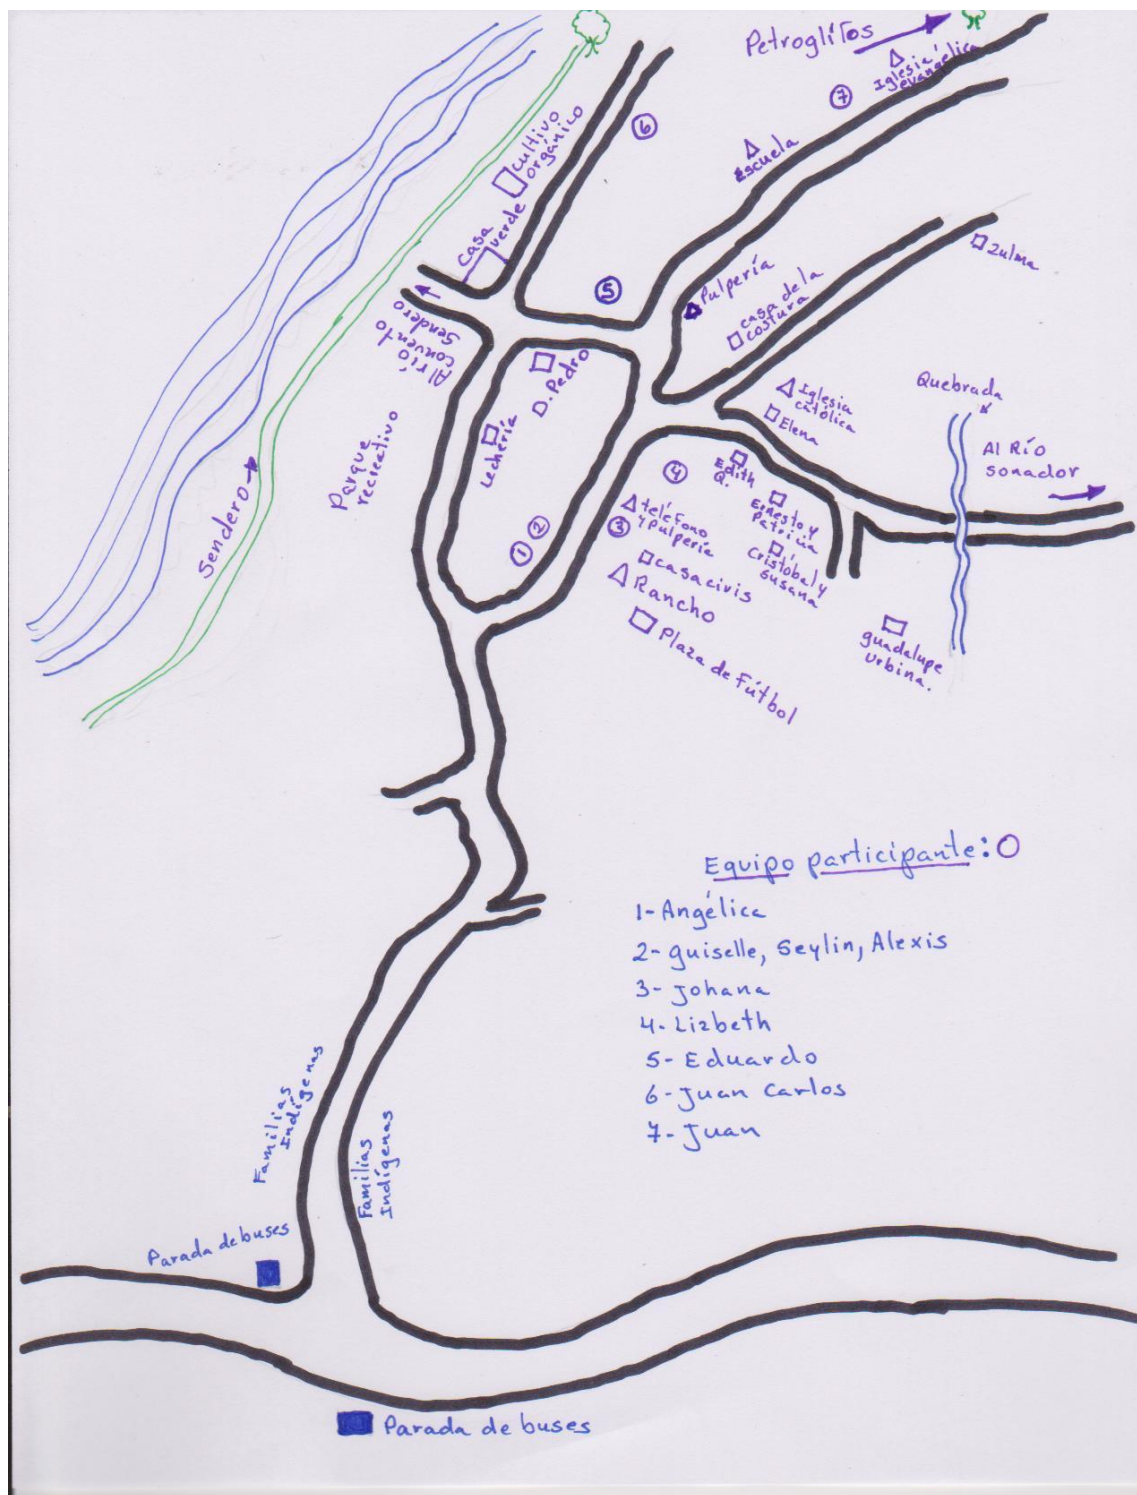 Petroglifos
Iglesia
evangélica
7
6
Cultivo
orgánico
Escuela
Casa
verde
Zulma
5
Pulpería
casa de la
costura
Al río
convento
Sendero
D. Pedro
Lechería
Parque
recreativo
Iglesia
católica
Elena
Quebrada
Al Río
sonador
Sendero
4
Edith
Q.
Ernesto y
Patricia
Cristóbal y
Susana
teléfono
y pulpería
3
2
1
casa civis
Rancho
Plaza de Fútbol
guadalupe
urbina.
Equipo participante:
1- Angélica
2- guiselle, Seylin, Alexis
3- Johana
4- Lizbeth
5- Eduardo
6- Juan Carlos
7- Juan
Familias
Indígenas
Familias
Indígenas
Parada de buses
Parada de buses